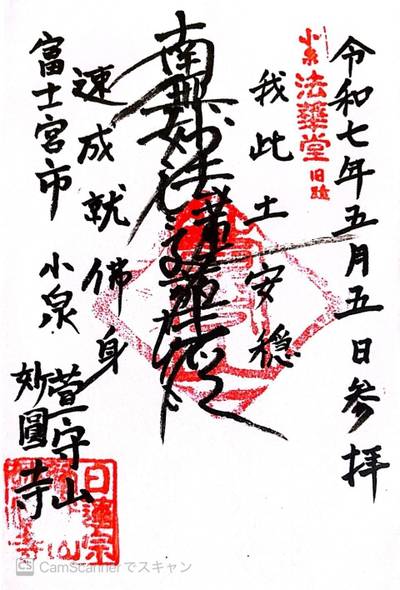 令和七年五月五日参拝
小泉
法華堂
旧跡
我此土安穏
南無妙法蓮華経
速成就佛身
富士宮市 小泉
萱守山
妙圓寺
日蓮宗
CS CamScannerでスキャン